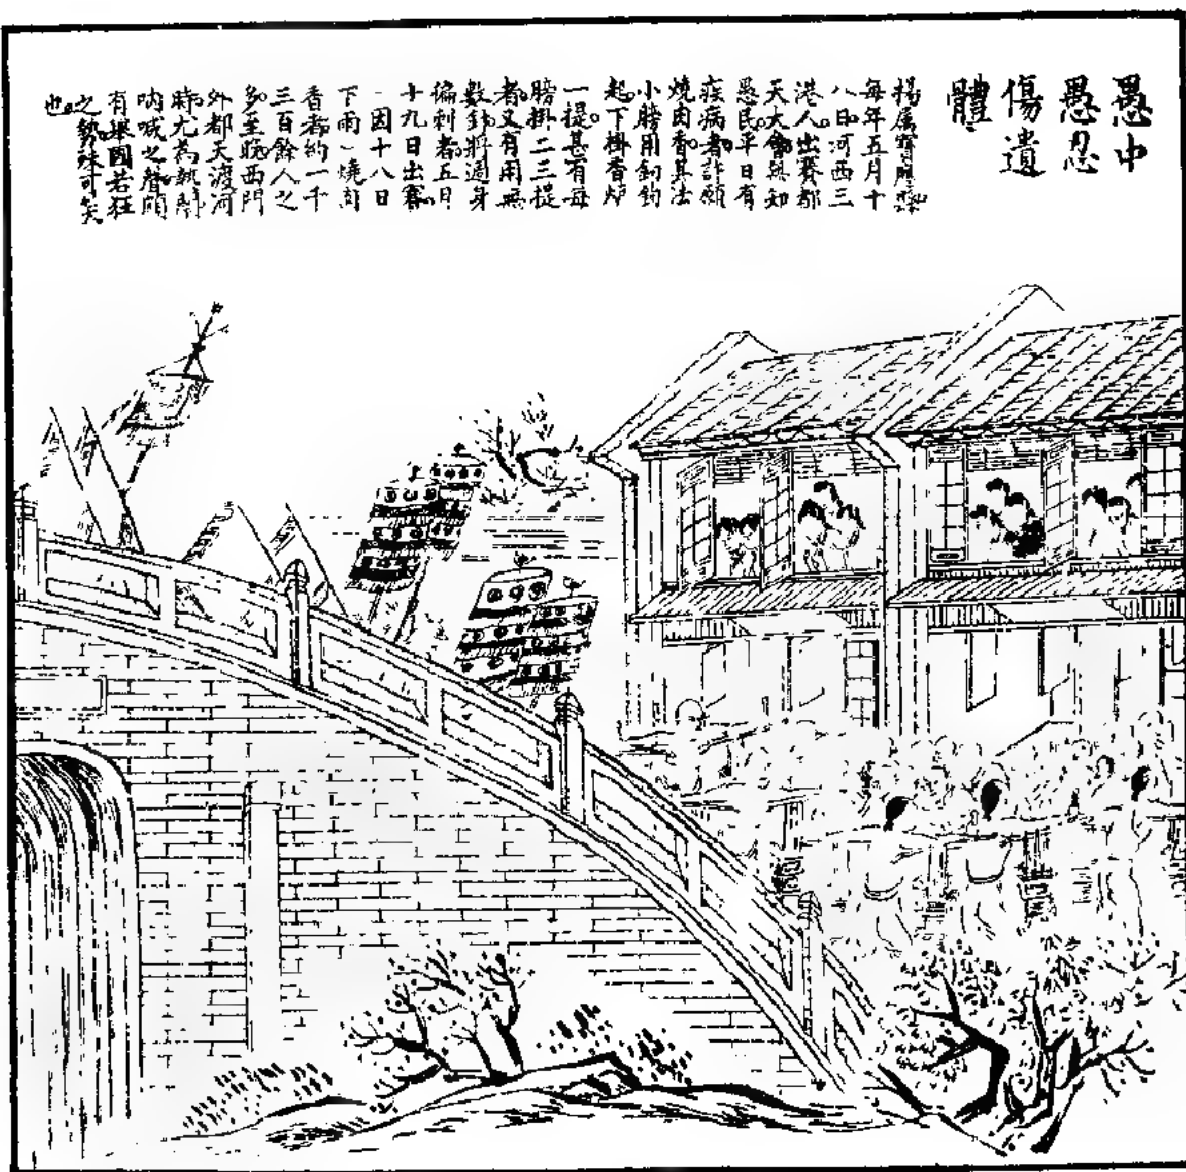 愚中
愚忍
傷遺
體
揚屬寶應縣
每年五月十
八日河西三
港人出賽都
天大會無知
愚民平日有
疾病者許願
燒肉香其法
小膀用鉤鉤
起下掛香爐
一提甚有每
膀掛二三提
者又有用無
數針將遍身
偏刺者五月
十九日出賽
(因十八日
下雨)燒肉
香者約一千
三百餘人之
多至晚西門
外都天渡河
時尤為熱鬧
吶喊之聲頗
有舉國若狂
之勢殊可笑
也